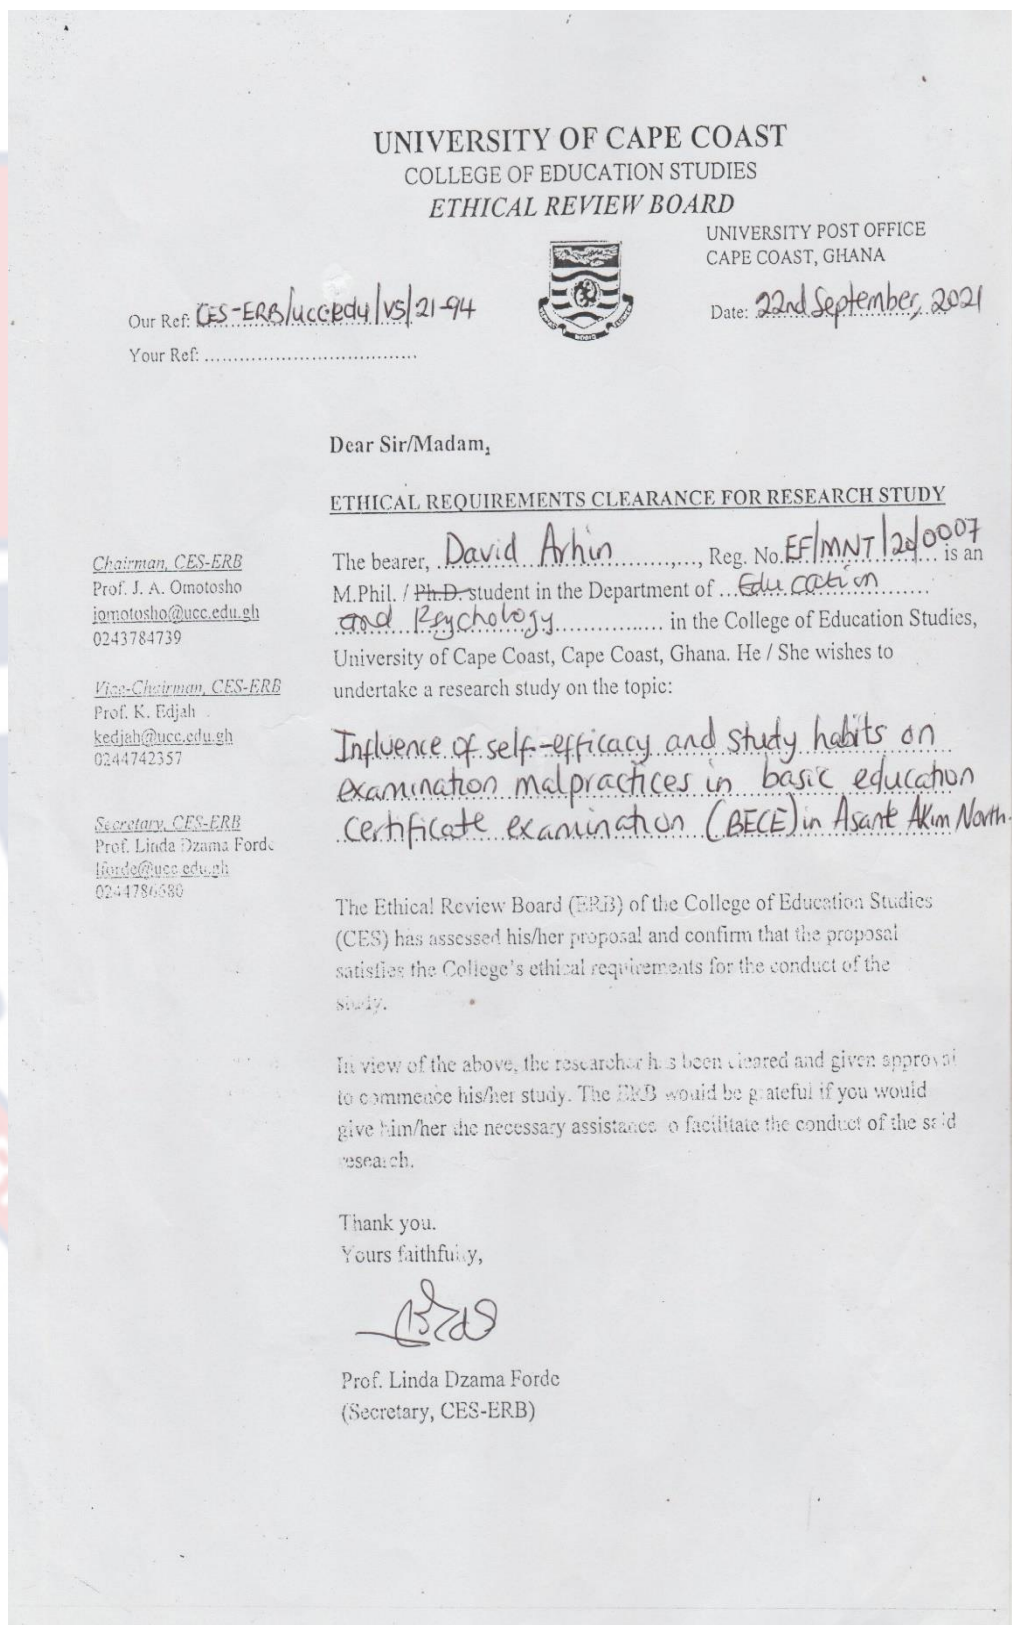 UNIVERSITY OF CAPE COAST
COLLEGE OF EDUCATION STUDIES
ETHICAL REVIEW BOARD
UNIVERSITY POST OFFICE
CAPE COAST, GHANA
Our Ref: CES-ERB/ucc.edu/V5/21-94
Date: 22nd September, 2021
Your Ref: ....................................
Dear Sir/Madam,
ETHICAL REQUIREMENTS CLEARANCE FOR RESEARCH STUDY
Chairman, CES-ERB
Prof. J. A. Omotosho
jomotosho@ucc.edu.gh
0243784739
Vice-Chairman, CES-ERB
Prof. K. Edjah
kedjah@ucc.edu.gh
0244742357
Secretary, CES-ERB
Prof. Linda Dzama Forde
lforde@ucc.edu.gh
0244786680
The bearer, David Arhin, Reg. No. EF/MNT/20/0007 is an
M.Phil. / Ph.D. student in the Department of Education
and Psychology in the College of Education Studies,
University of Cape Coast, Cape Coast, Ghana. He / She wishes to
undertake a research study on the topic:
Influence of self-efficacy and study habits on
examination malpractices in basic education
certificate examination (BECE) in Asante Akim North.
The Ethical Review Board (ERB) of the College of Education Studies
(CES) has assessed his/her proposal and confirm that the proposal
satisfies the College's ethical requirements for the conduct of the
study.
In view of the above, the researcher has been cleared and given approval
to commence his/her study. The ERB would be grateful if you would
give him/her the necessary assistance to facilitate the conduct of the said
research.
Thank you.
Yours faithfully,
Prof. Linda Dzama Forde
(Secretary, CES-ERB)